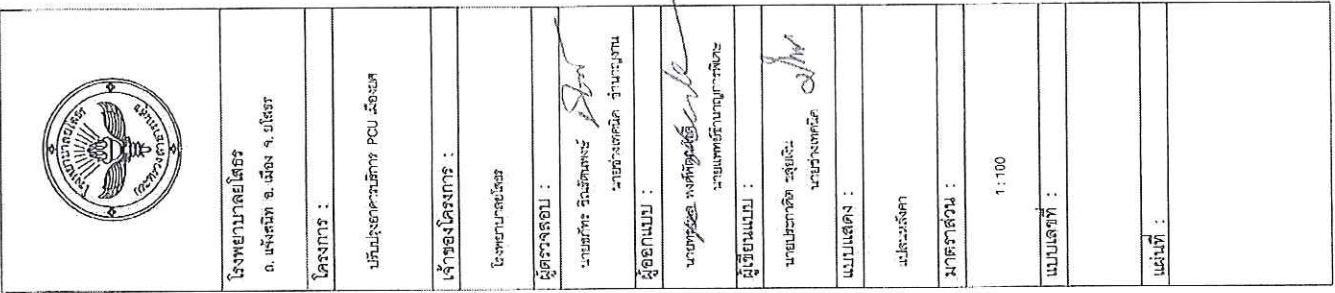 โรงพยาบาลยโสธร
กระทรวงสาธารณสุข
โรงพยาบาลยโสธร
ถ. แจ้งสนิท อ. เมือง จ. ยโสธร
โครงการ :
ปรับปรุงอาคารบริการ PCU เมืองยศ
เจ้าของโครงการ :
โรงพยาบาลยโสธร
ผู้ตรวจสอบ :
นายช่างเทคนิค ชำนาญงาน
ผู้ออกแบบ :
นายแพทย์ชำนาญการพิเศษ
ผู้เขียนแบบ :
นายประกาศิต
นายช่างเทคนิค
แบบแสดง :
แปลนหลังคา
มาตราส่วน :
1:100
แบบเลขที่ :
แผ่นที่ :